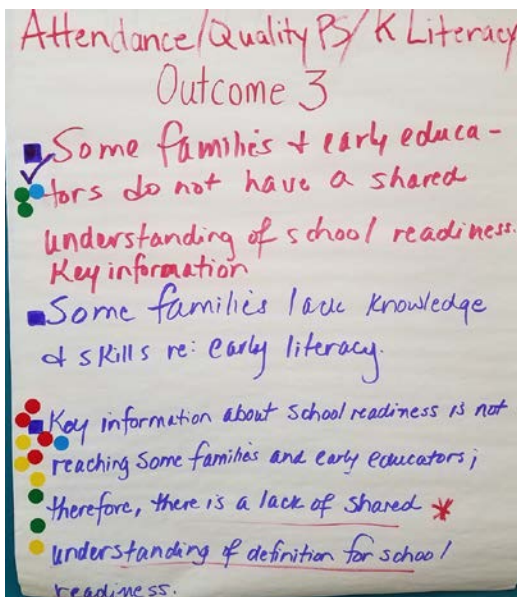 Attendance/Quality PS/K Literacy
Outcome 3
Some families & early educa-
tors do not have a shared
understanding of school readiness.
Key information
Some families lack knowledge
& skills re: early literacy.
Key information about school readiness is not
reaching some families and early educators;
therefore, there is a lack of shared *
understanding of definition for school
readiness.